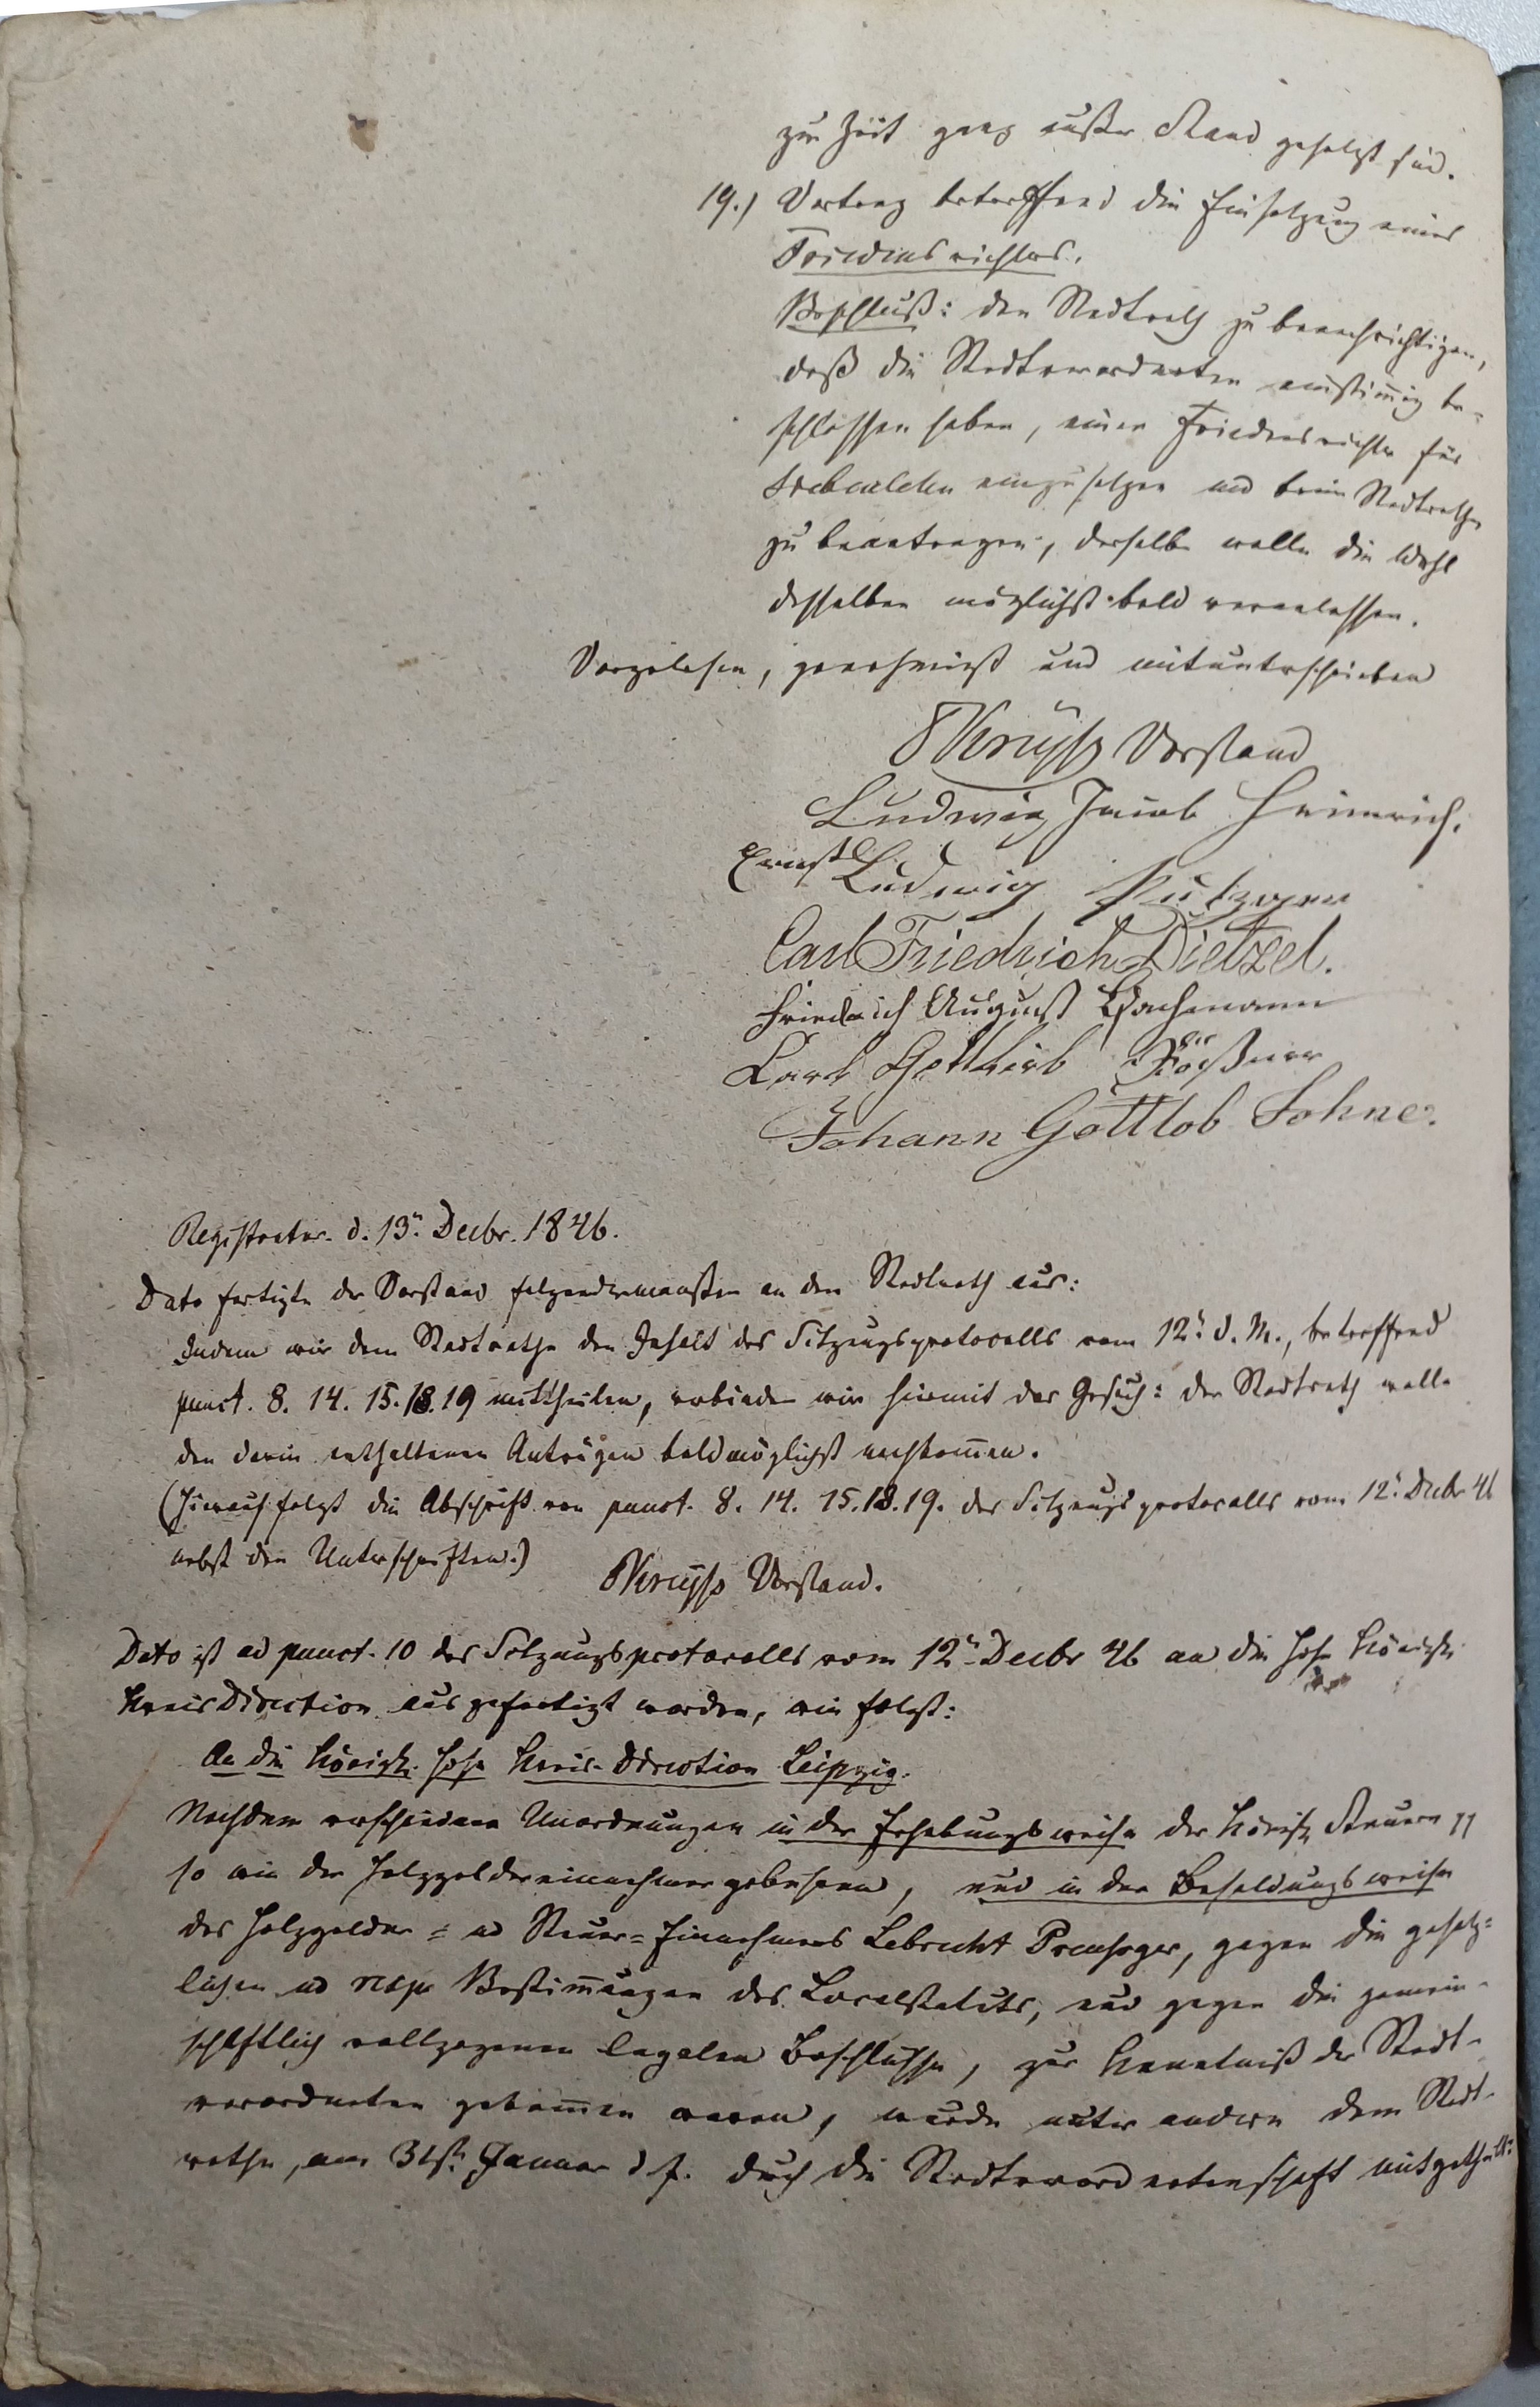 zur Zeit ganz außer Stand gesetzt sind.
19.) Vortrag betreffend die Einsetzung eines
Friedensrichters.
Beschluß: den Stadtrath zu benachrichtigen,
daß die Stadtverordneten einstim̄ig be-
schlossen haben, einen Friedensrichter für
einzusetzen und beim Stadtrathe
zu beantragen, derselbe wolle die Wahl
desselben möglichst bald veranlassen.
Vorgelesen, genehmigt und mitunterschrieben
Vorstand
Ludwig Jacob Heinrich.
Ernst Ludwig
Carl Friedrich Dietzel.
Friedrich August Bachmann
Carl Gottlieb Rößner
Johann Gottlob Sohne.
Registratur. d. 13. Decbr. 1846.
Dato fertigte der Vorstand folgendermaaßen an den Stadtrath aus:
Indem wir dem Stadtrathe den Inhalt des Sitzungsprotocolls vom 12. d. M., betreffend
punct. 8. 14. 15. 18. 19 mittheilen, verbinden wir hiermit das Gesuch: der Stadtrath wolle
den darin enthaltenen Anträgen baldmöglichst nachkom̄en.
(Hierauf folgt die Abschrift von punct. 8. 14. 15. 18. 19. des Sitzungsprotocolls vom 12. Decbr 46
nebst den Unterschriften.)
Vorstand.
Dato ist ad punct. 10 des Sitzungsprotocolls vom 12. Decbr 46 an die hohe Königl.
Kreis Direction ausgefertigt worden, wie folgt:
An die Königl. hohe Kreis-Direction Leipzig.
Nachdem verschiedene Unordnungen in der Erhebungsweise der Königl. Steuern
so wie der Holzgeldereinnehmergebühren, und in der Besoldungsweise
des Holzgelder- und Steuer-Einnehmers Lebrecht, gegen die gesetz-
lichen und resp. Bestim̄ungen des Localstatuts, und gegen die gemein-
schaftlich vollzogenen legalen Beschlüsse, zur Kenntniß der Stadt-
verordneten gekom̄en waren, wurde unter andern dem Stadt-
rathe, am 31st. Januar d. J. durch die Stadtverordnetenschaft mitgetheilt: